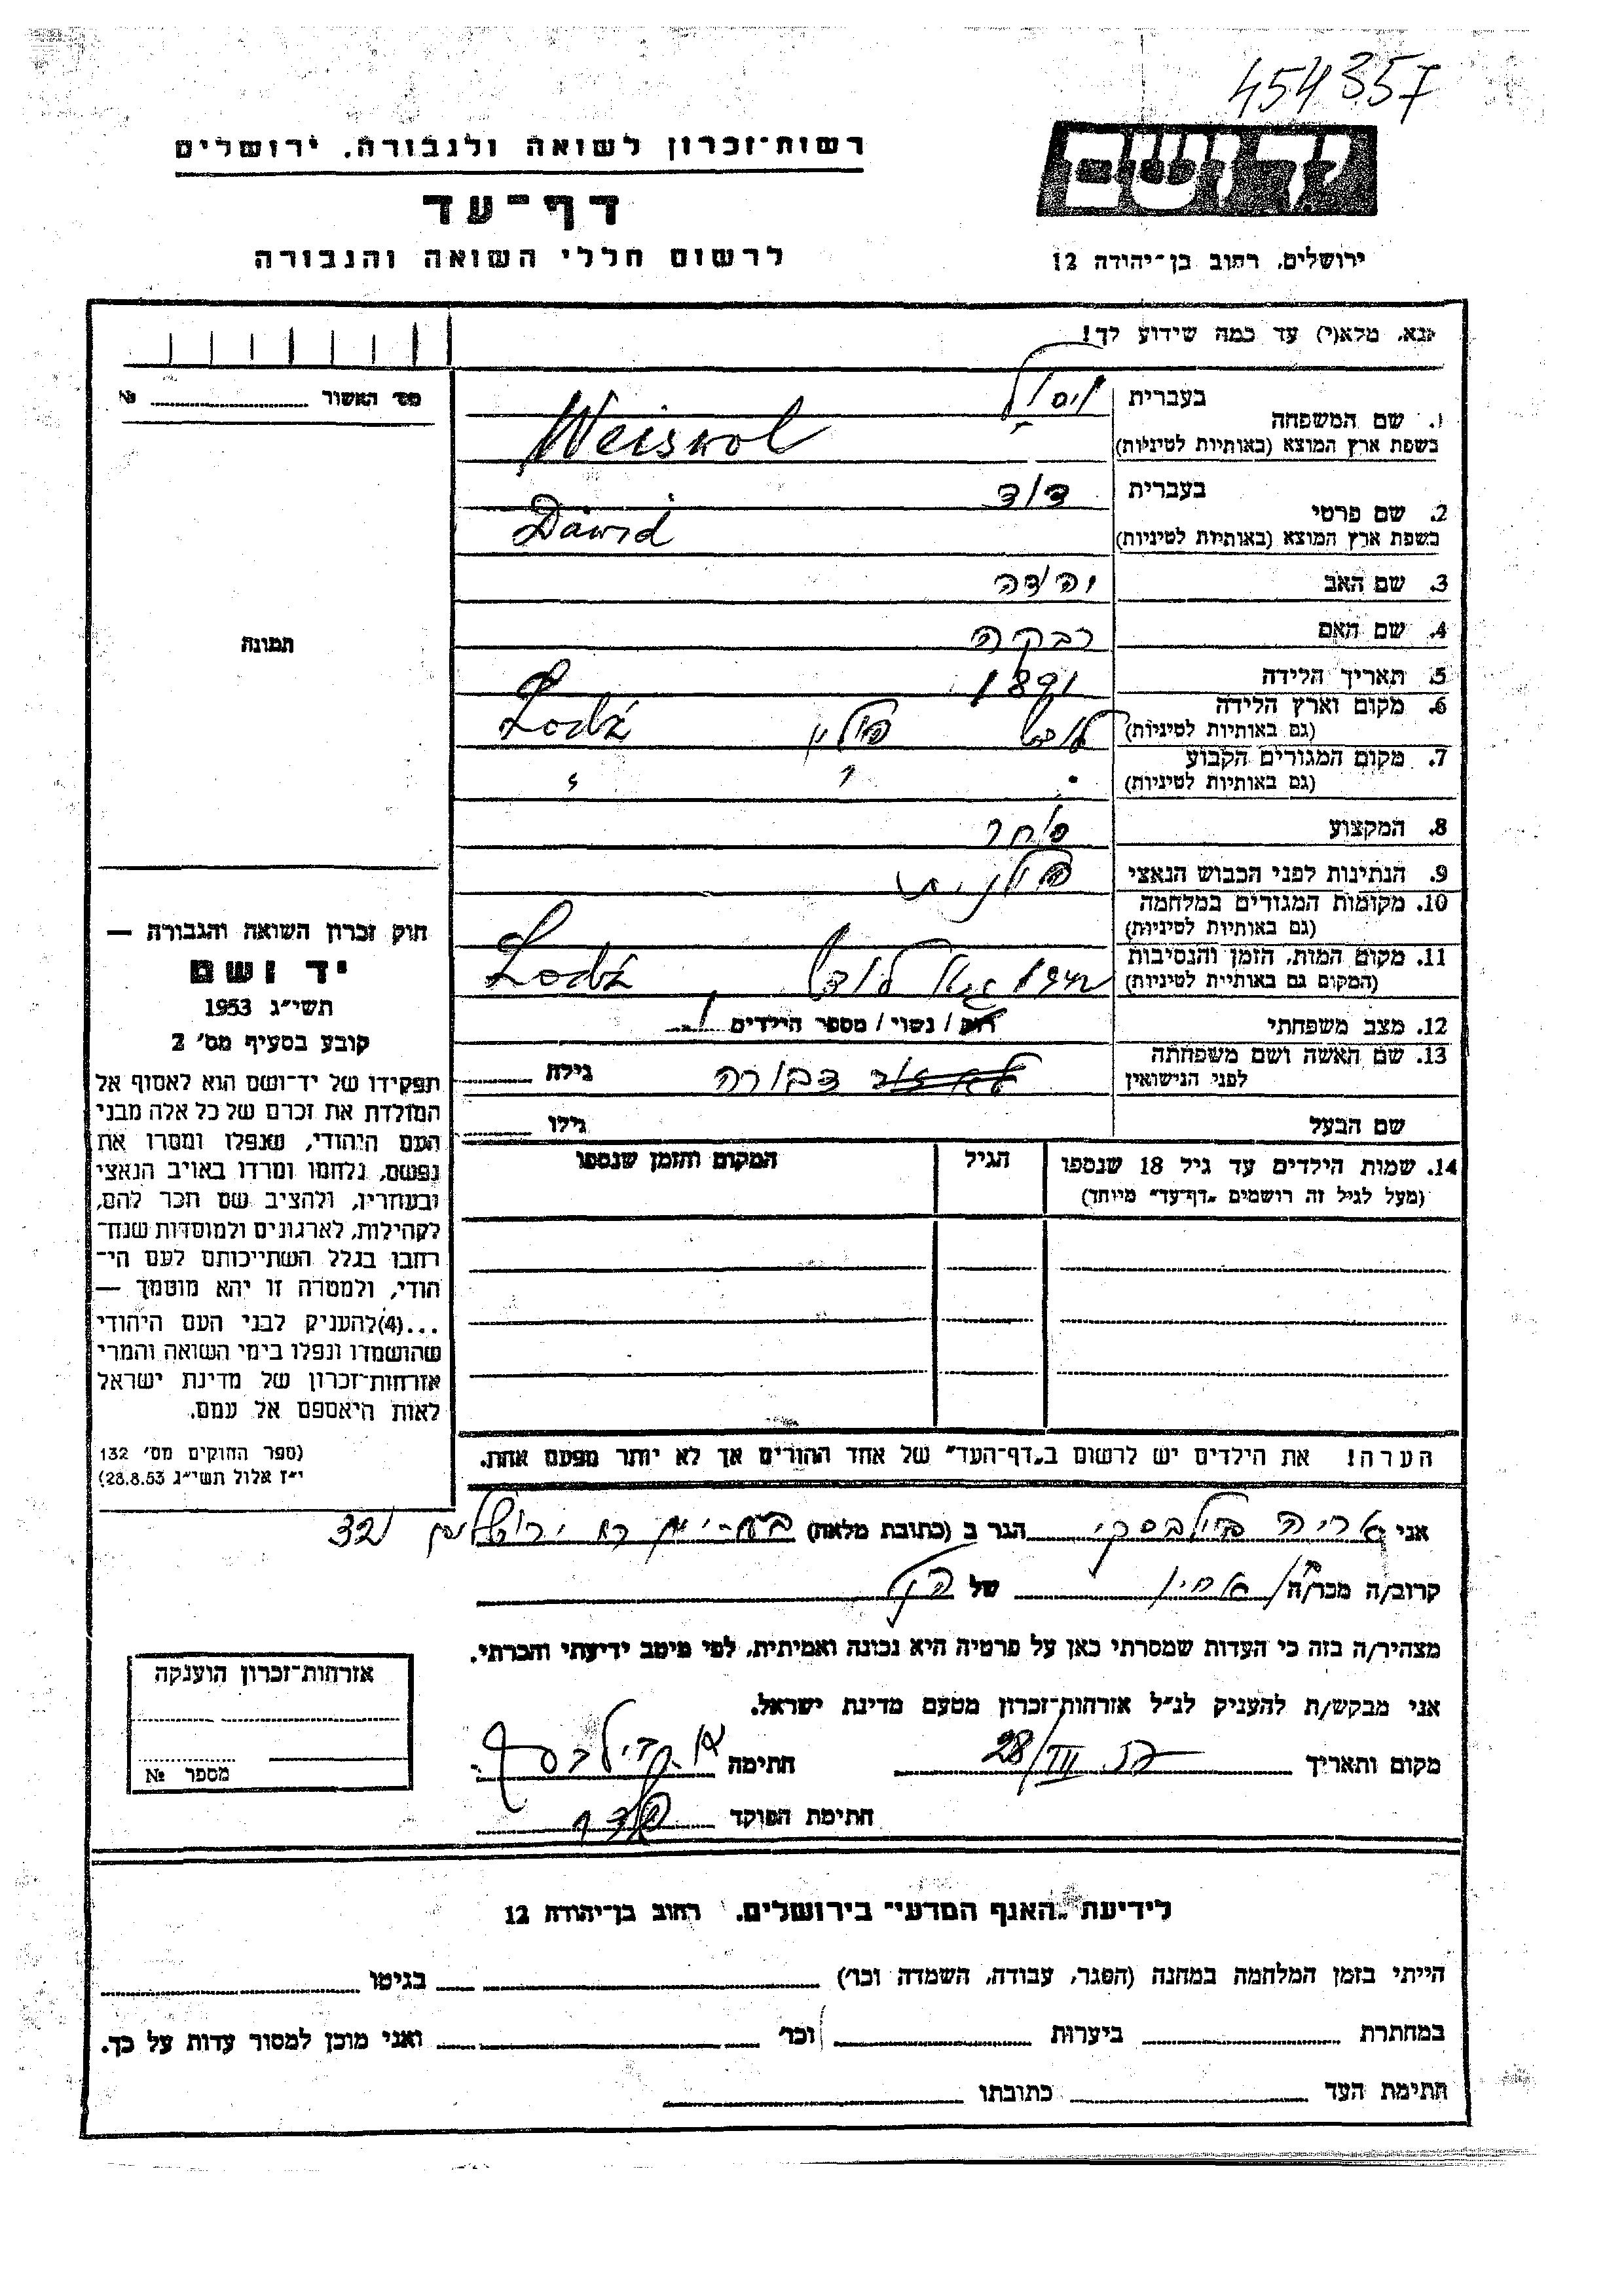 454357
יד ושם
רשות־זכרון לשואה ולגבורה. ירושלים
דף־עד
לרשום חללי השואה והגבורה
ירושלים. רחוב בן־יהודה 12
נא. מלא(י) עד כמה שידוע לך!
מס׳ האשור № 
1. שם המשפחה בעברית
בשפת ארץ המוצא (באותיות לטיניות) Weiskol
2. שם פרטי בעברית דוד
בשפת ארץ המוצא (באותיות לטיניות) Dawid
3. שם האב יהודה
4. שם האם רבקה
5. תאריך הלידה 1891
6. מקום וארץ הלידה (גם באותיות לטיניות) לודז׳ פולין Łodź
7. מקום המגורים הקבוע (גם באותיות לטיניות) " " "
8. המקצוע סוחר
9. הנתינות לפני הכבוש הנאצי פולנית
10. מקומות המגורים במלחמה (גם באותיות לטיניות)
11. מקום המות. הזמן והנסיבות (המקום גם באותיות לטיניות) גטו לודז׳ Łodź
12. מצב משפחתי רווק / נשוי / מספר הילדים 1
13. שם האשה ושם משפחתה לפני הנישואין דבורה גילה
שם הבעל גילו
14. שמות הילדים עד גיל 18 שנספו הגיל המקום והזמן שנספו
(מעל לגיל זה רושמים „דף־עד״ מיוחד)
תמונה
חוק זכרון השואה והגבורה —
יד ושם
תשי״ג 1953
קובע בסעיף מס׳ 2
תפקידו של יד־ושם הוא לאסוף אל
המולדת את זכרם של כל אלה מבני
העם היהודי, שנפלו ומסרו את
נפשם, נלחמו ומרדו באויב הנאצי
ובעוזריו, ולהציב שם וזכר להם,
לקהילות, לארגונים ולמוסדות שנח־
רבו בגלל השתייכותם לעם הי־
הודי, ולמטרה זו יהא מוסמך —
...(4)להעניק לבני העם היהודי
שהושמדו ונפלו בימי השואה והמרי
אזרחות־זכרון של מדינת ישראל
לאות היאספם אל עמם.
(ספר החוקים מס׳ 132
י״ז אלול תשי״ג 28.8.53)
הערה! את הילדים יש לרשום ב„דף־העד״ של אחד ההורים אך לא יותר מפעם אחת.
אני אריה הגר ב (כתובת מלאה) בת־ים רח ירושלים 32
קרוב/ה מכר/ה של הנ״ל
מצהיר/ה בזה כי העדות שמסרתי כאן על פרטיה היא נכונה ואמיתית, לפי מיטב ידיעתי והכרתי.
אני מבקש/ת להעניק לנ״ל אזרחות־זכרון מטעם מדינת ישראל.
מקום ותאריך 28/III חתימה
חתימת הפוקד
אזרחות־זכרון הוענקה
מספר №
לידיעת „האגף המדעי״ בירושלים. רחוב בן־יהודה 12
הייתי בזמן המלחמה במחנה (הסגר, עבודה, השמדה וכו׳) בגיטו
במחתרת ביערות וכו׳ ואני מוכן למסור עדות על כך.
חתימת העד כתובתו